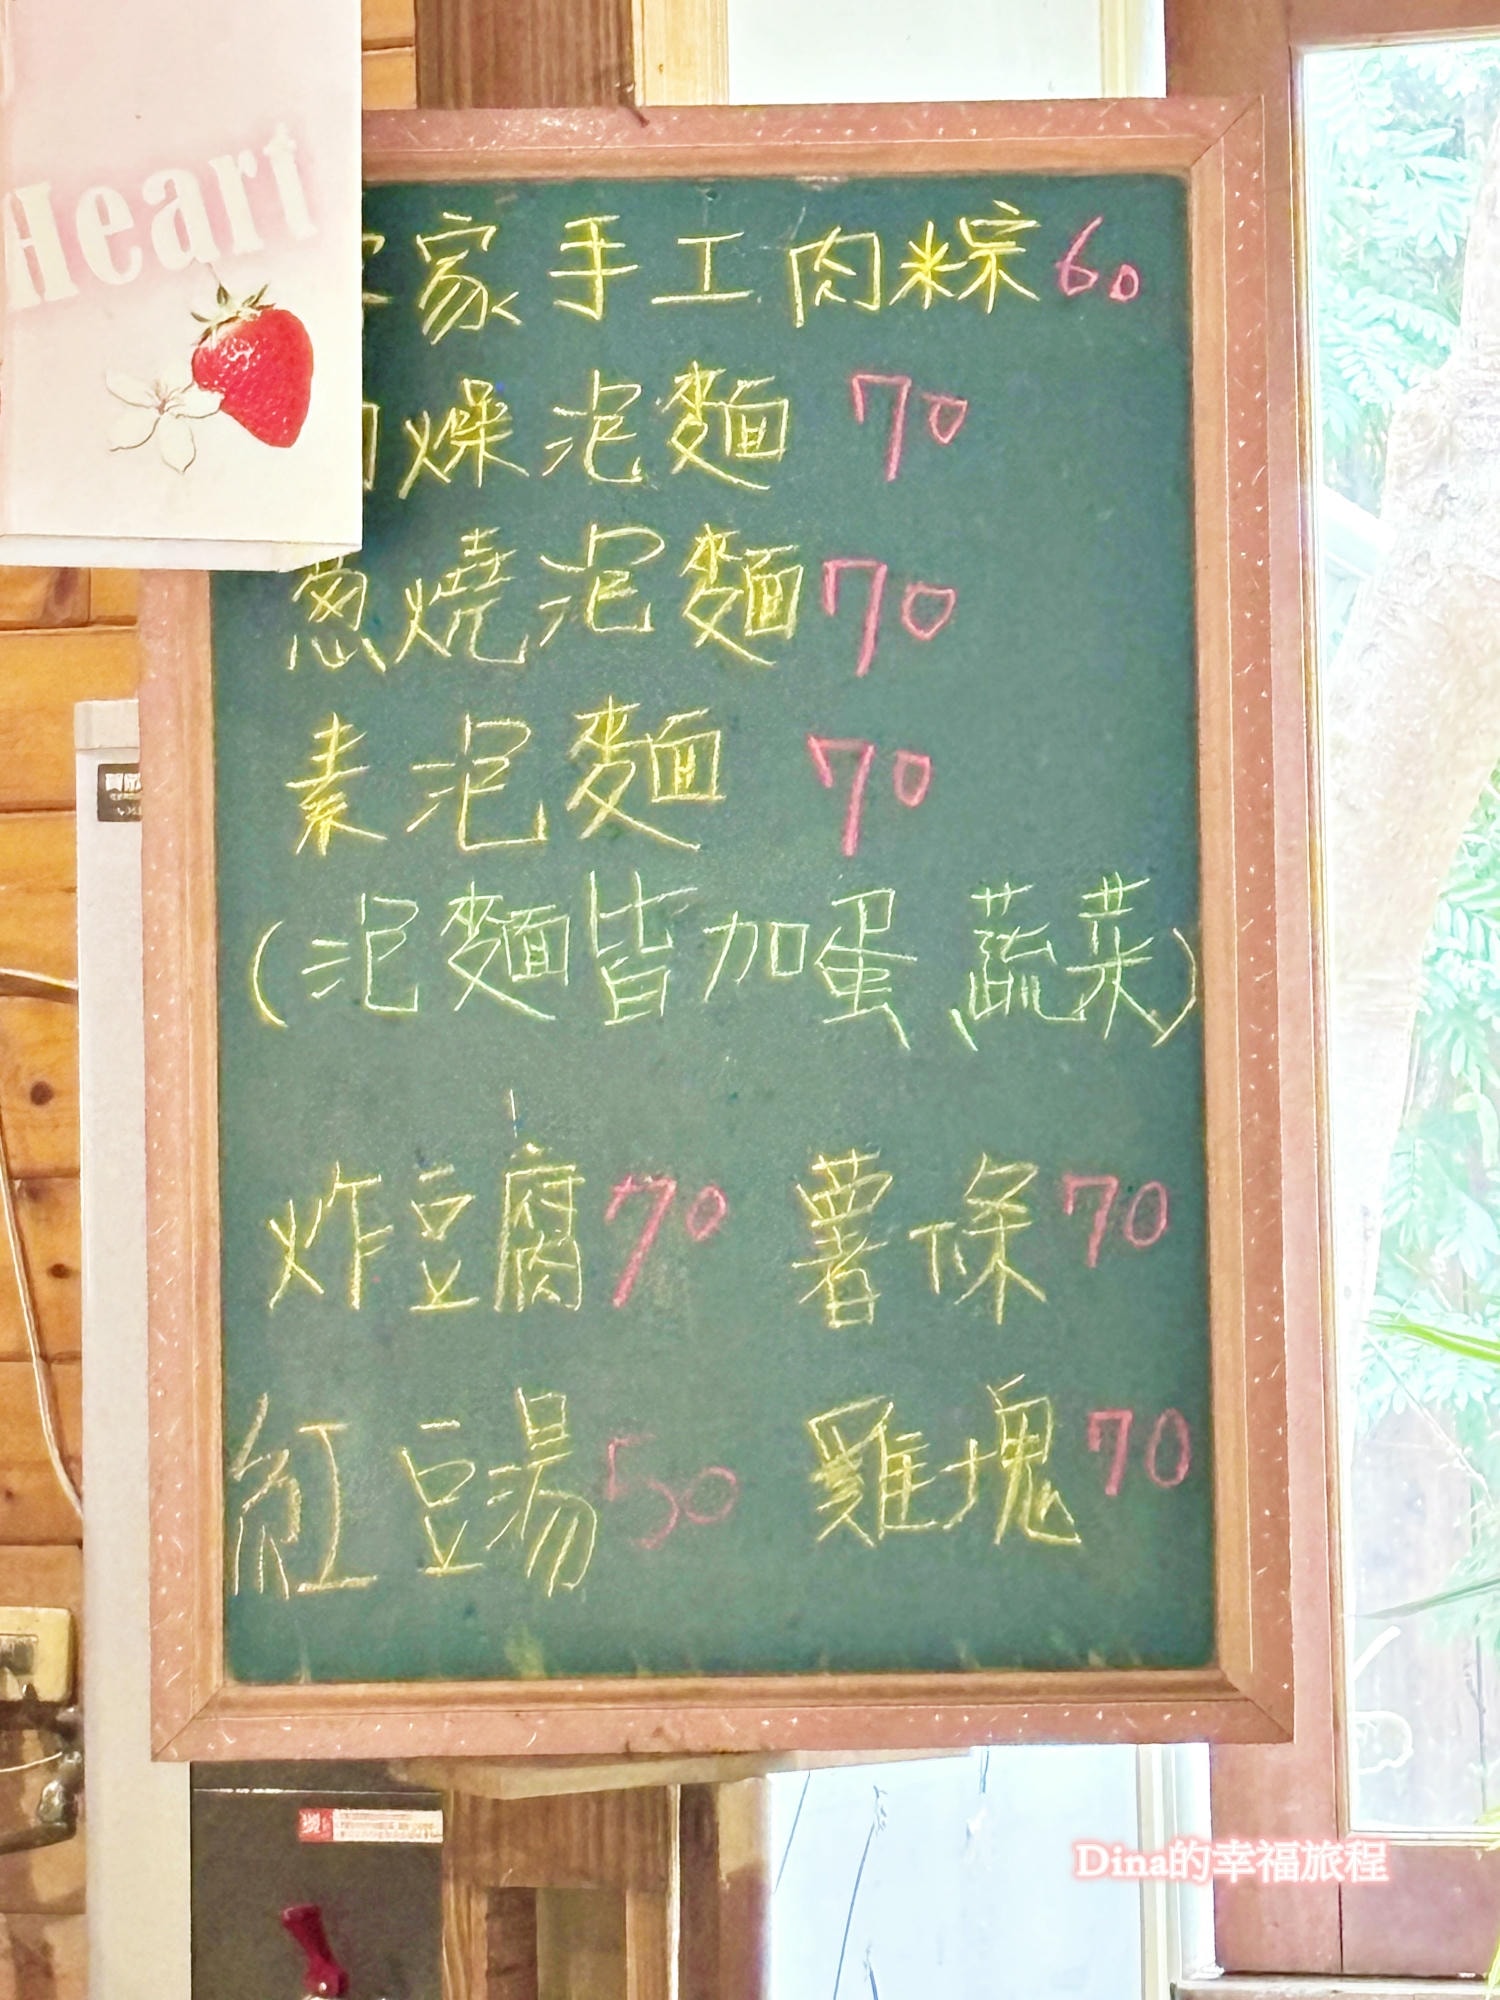 Heart
家手工肉粽60
燥泡麵 70
蔥燒泡麵70
素泡麵 70
(泡麵皆加蛋、蔬菜)
炸豆腐70 薯條70
紅豆湯50 雞塊70
Dina的幸福旅程